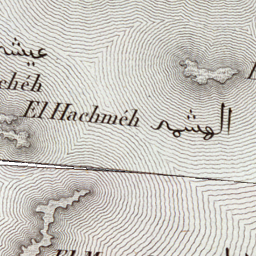 عيشه
chéh
El Hachméh الهشمه
El M